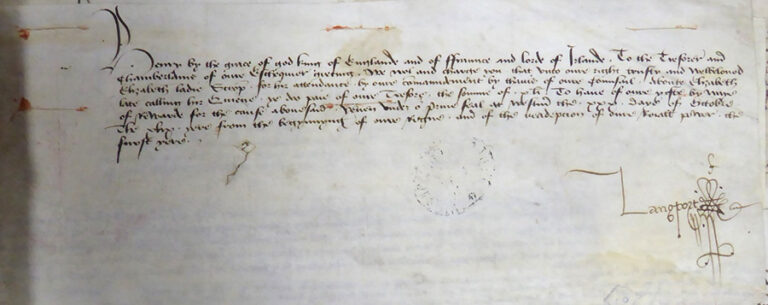 Henry by the grace of god king of Englande and of ffraunce and lord of Irlande . To the Tresorer and
Chamberlains of oure Eschequier greting . We wol and charge you that unto oure right trusty and welbeloved
Elizabeth ladie Scrop . for hir attendance by oure comaundement by thavis of oure Counsail . aboute Elizabeth
late calling hir Quene . ye do paie of oure Tresore the somme of . x li . To have of oure yifte by wey
of rewarde for the cause abovesaid . Yeven undre oure prive seal at Westm the day of Octobre
The yere from the begynnyng of oure Regne . and of the readepcion of oure Roiall power the
furst yere .
Langport